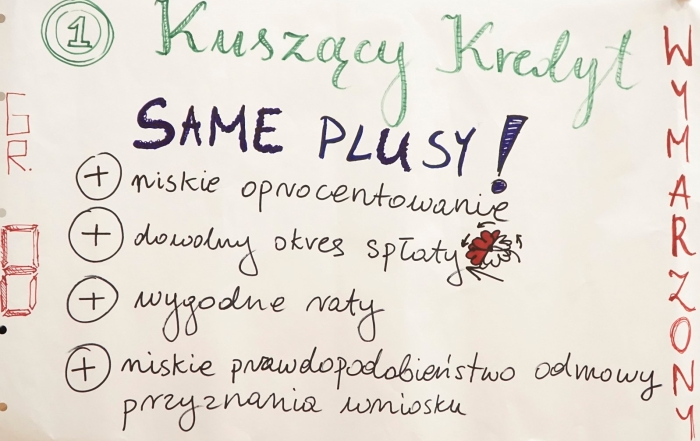 1 Kuszący Kredyt
SAME PLUSY!
+ niskie oprocentowanie
+ dowolny okres spłaty
+ wygodne raty
+ niskie prawdopodobieństwo odmowy
przyznania wniosku
GR.
8
WYMARZONY